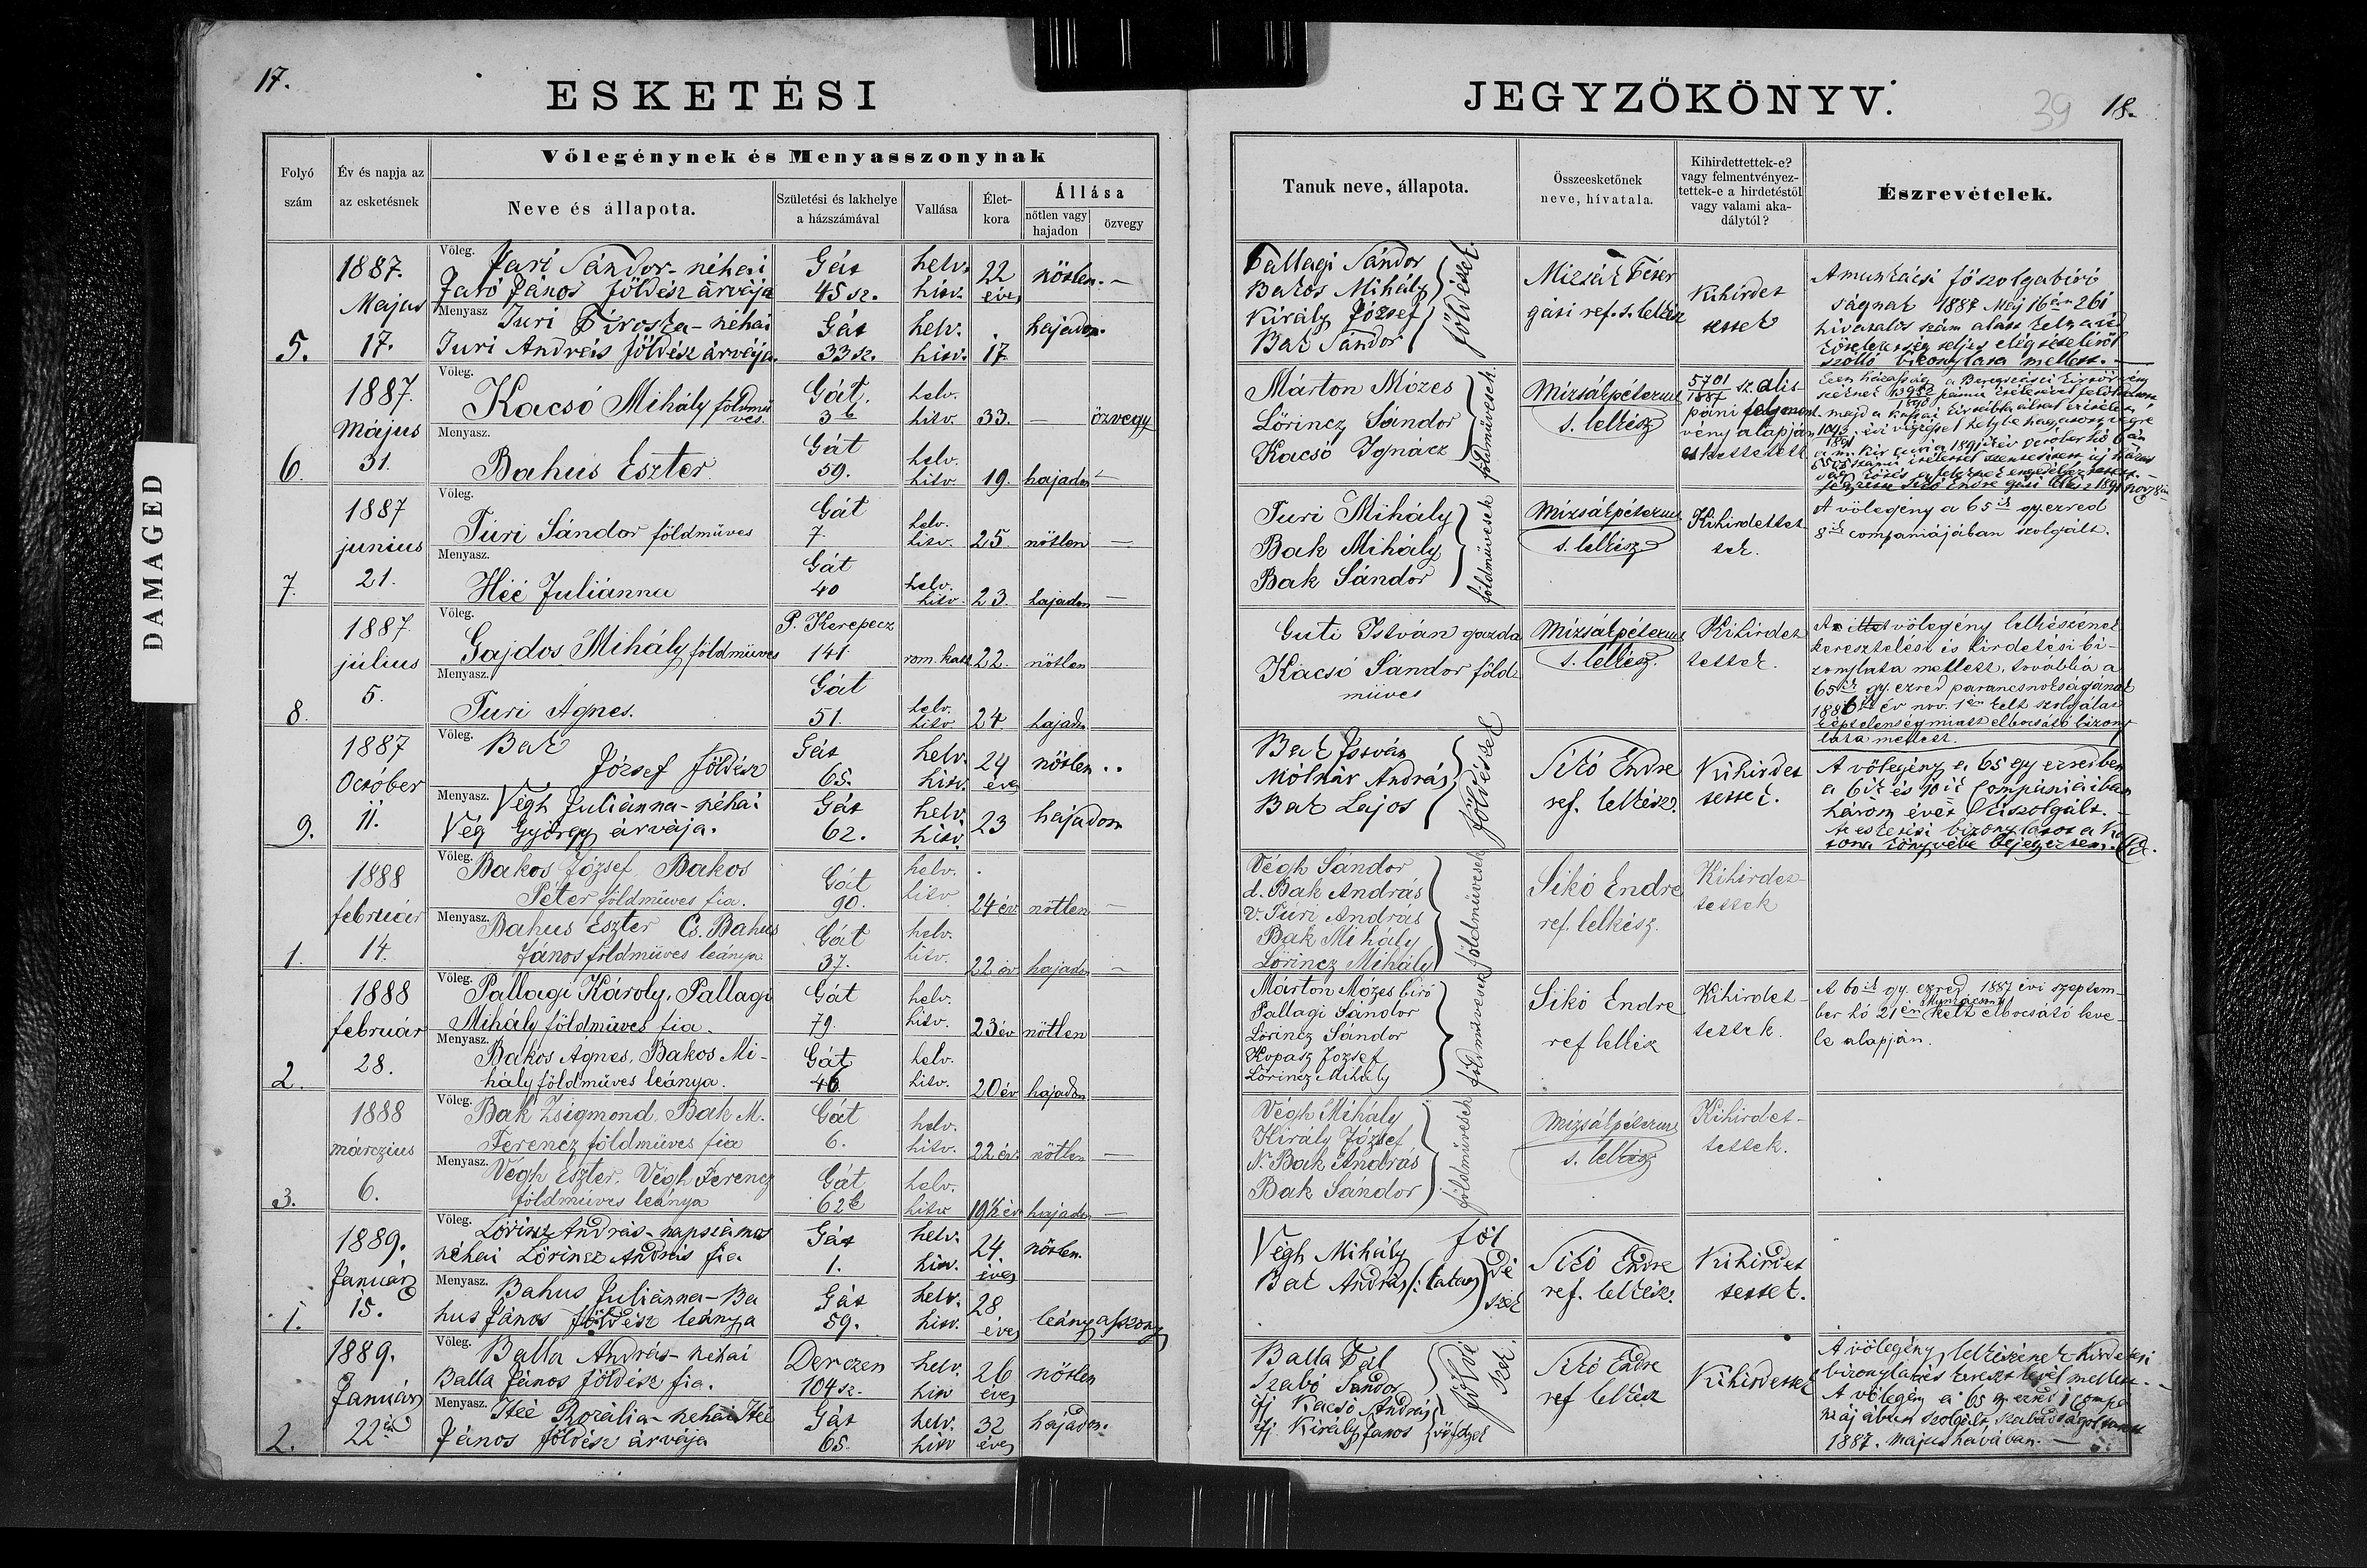 17.
ESKETÉSI
Folyó szám
Év és napja az az esketésnek
Vőlegénynek és Menyasszonynak
Neve és állapota.
Születési és lakhelye a házszámával
Vallása
Élet-kora
Állása
nőtlen vagy hajadon
özvegy
5.
1887.
Majus
17.
Vőleg.
Sándor - néhai
János földész árvája
Gát
45 sz.
helv.
hitv.
22
éves
nőtlen. —
Menyasz
Turi Piroska - néhai
Turi András földész árvája.
Gát
33 sz.
helv.
hitv.
17
hajadon.
6.
1887.
Május
31.
Vőleg.
Kacsó Mihály földmű
ves.
Gát.
36
helv.
hitv.
33.
—
özvegy
Menyasz.
Bahus Eszter
Gát
59.
helv.
hitv.
19.
hajadon
—
7.
1887
junius
21.
Vőleg.
Túri Sándor földmüves
Gát
7.
helv.
hitv.
25.
nőtlen
—
Menyasz.
Héé Juliánna
Gát
40
helv.
hitv.
23.
hajadon
—
8.
1887.
július
5.
Vőleg.
Gajdos Mihály földmüves
P. Kerepecz
141
rom. kath
22.
nőtlen
Menyasz.
Turi Ágnes.
Gát
51.
helv.
hitv
24.
hajadon
9.
1887
Október
11.
Vőleg.
Bak
József földész
Gát
65.
helv.
hitv.
24
éves
nőtlen..
Menyasz.
Végh Juliánna - néhai
Vég György árvája.
Gát
62.
helv.
hitv.
23
hajadon
1.
1888
február
14.
Vőleg.
Bakos József, Bakos
Péter földmüves fia.
Gát
90.
helv.
hitv
24 év.
nőtlen
—
Menyasz.
Bahus Eszter Cs. Bahus
János földmüves leánya
Gát
37.
helv.
hitv.
22 év
hajadon
—
2.
1888
február
28.
Vőleg.
Pallagi Károly. Pallagi
Mihály földmüves fia.
Gát
79.
helv.
hitv.
23 év
nőtlen
Menyasz.
Bakos Ágnes, Bakos Mi-
hály földmüves leánya.
Gát
46.
helv.
hitv.
20 év
hajadon
3.
1888
márczius
6.
Vőleg.
Bak Zsigmond. Bak M.
Ferencz földmüves fia
Gát
6.
helv.
hitv.
22 év.
nőtlen
—
Menyasz.
Végh Eszter. Végh Ferencz
földmüves leánya
Gát
62
helv.
hitv
19½ év
hajadon
—
1.
1889.
Január
15.
Vőleg.
Lőrincz András - napszámos
néhai Lőrincz András fia
Gát
1.
helv.
hitv.
24.
éves
nőtlen.
Menyasz.
Bahus Juliánna - Ba
hus János földész leánya
Gát
59.
helv.
hitv.
28
éves
leány asszony
2.
1889.
Január
22
Vőleg.
Balla András - néhai
Balla János földész fia.
Derczen
104 sz.
helv.
hitv
26
éves
nőtlen
Menyasz.
Héé Rozália - néhai Héé
János földész árvája
Gát
65.
helv.
hitv
32
éves
hajadon.
JEGYZŐKÖNYV.
39
18.
Tanuk neve, állapota.
Összeesketőnek neve, hívatala.
Kihirdettettek-e? vagy felmentvényez-tettek-e a hirdetéstől vagy valami aka-dálytól?
Észrevételek.
Pallagi Sándor
Bakos Mihály
Király József
Bak Sándor
földészek.
Mizsák Péter
gáti ref. s. lelkész
Kihirdet
tettek
A munkácsi főszolgabírói
ságnak 1887 Máj 16án 261
hivatalos szám alatt kelt
szólló bizonylata mellett. —
Márton Mózes
Lőrincz Sándor
Kacsó Ignácz
földművesek.
Mizsák péter
s. lelkész
5701
1887 sz. alis
páni felgment
vény alapján
eskettettek
Turi Mihály
Bak Mihály
Bak Sándor
földművesek
Mizsák péter
s. lelkész
Kihirdettet
tek.
A vőlegény a 65ik gy. ezred
8ik companiájában szolgált.
Guti István gazda
Kacsó Sándor föld
müves
Mizsák péter
s. lelkész.
Kihirdet
tettek.
vőlegény lelkészének
keresztelési és hirdetési bi-
zonylata mellett, továbbá a
65ik gy. ezred parancsnokságának
1886ik év nov. 1én kelt szolgálat
képtelenség miatt elbocsátó bizony
lata mellett.
Bak István
Molnár András
Bak Lajos
földészek
Sikó Endre
ref. lelkész.
Kihirdet
tettek.
A vőlegény a 65 gy ezredben
a 6ik és 10ik compániáiban
három évet kiszolgált. —
Az esketési bizonylatot a ka
tona könyvébe bejegyeztem.
Végh Sándor
d. Bak András
v. Túri András
Bak Mihály
Lőrincz Mihály
földmüvesek
Sikó Endre
ref. lelkész.
Kihirdet-
tettek
Márton Mózes biró
Pallagi Sándor
Lőrincz Sándor
Kopasz József
Lőrincz Mihály
földmüvesek
Sikó Endre
ref lelkész
Kihirdet-
tettek.
gy. ezred 1887 évi szeptem-
ber hó 21én Munkácson kelt elbocsátó leve-
le alapján.
Végh Mihály
Király József
N. Bak András
Bak Sándor
földművesek
Mizsák péter
s. lelkész
Kihirdet-
tettek.
Végh Mihály
Bak András
föl
dé
szek
Sikó Endre
ref. lelkész.
Kihirdet
tettek.
Balla Pál
Szabó Sándor
ifj Kacsó András
ifj. Király János
földé
szek.
vőfélyek
Sikó Endre
ref lelkész
Kihirdettek
A vőlegény lelkészének hirdetési
bizonylata és kereszt levél mellett. —
A vőlegény a 65 gy ezred
májában szolgált,
1887. május havában. —
DAMAGED